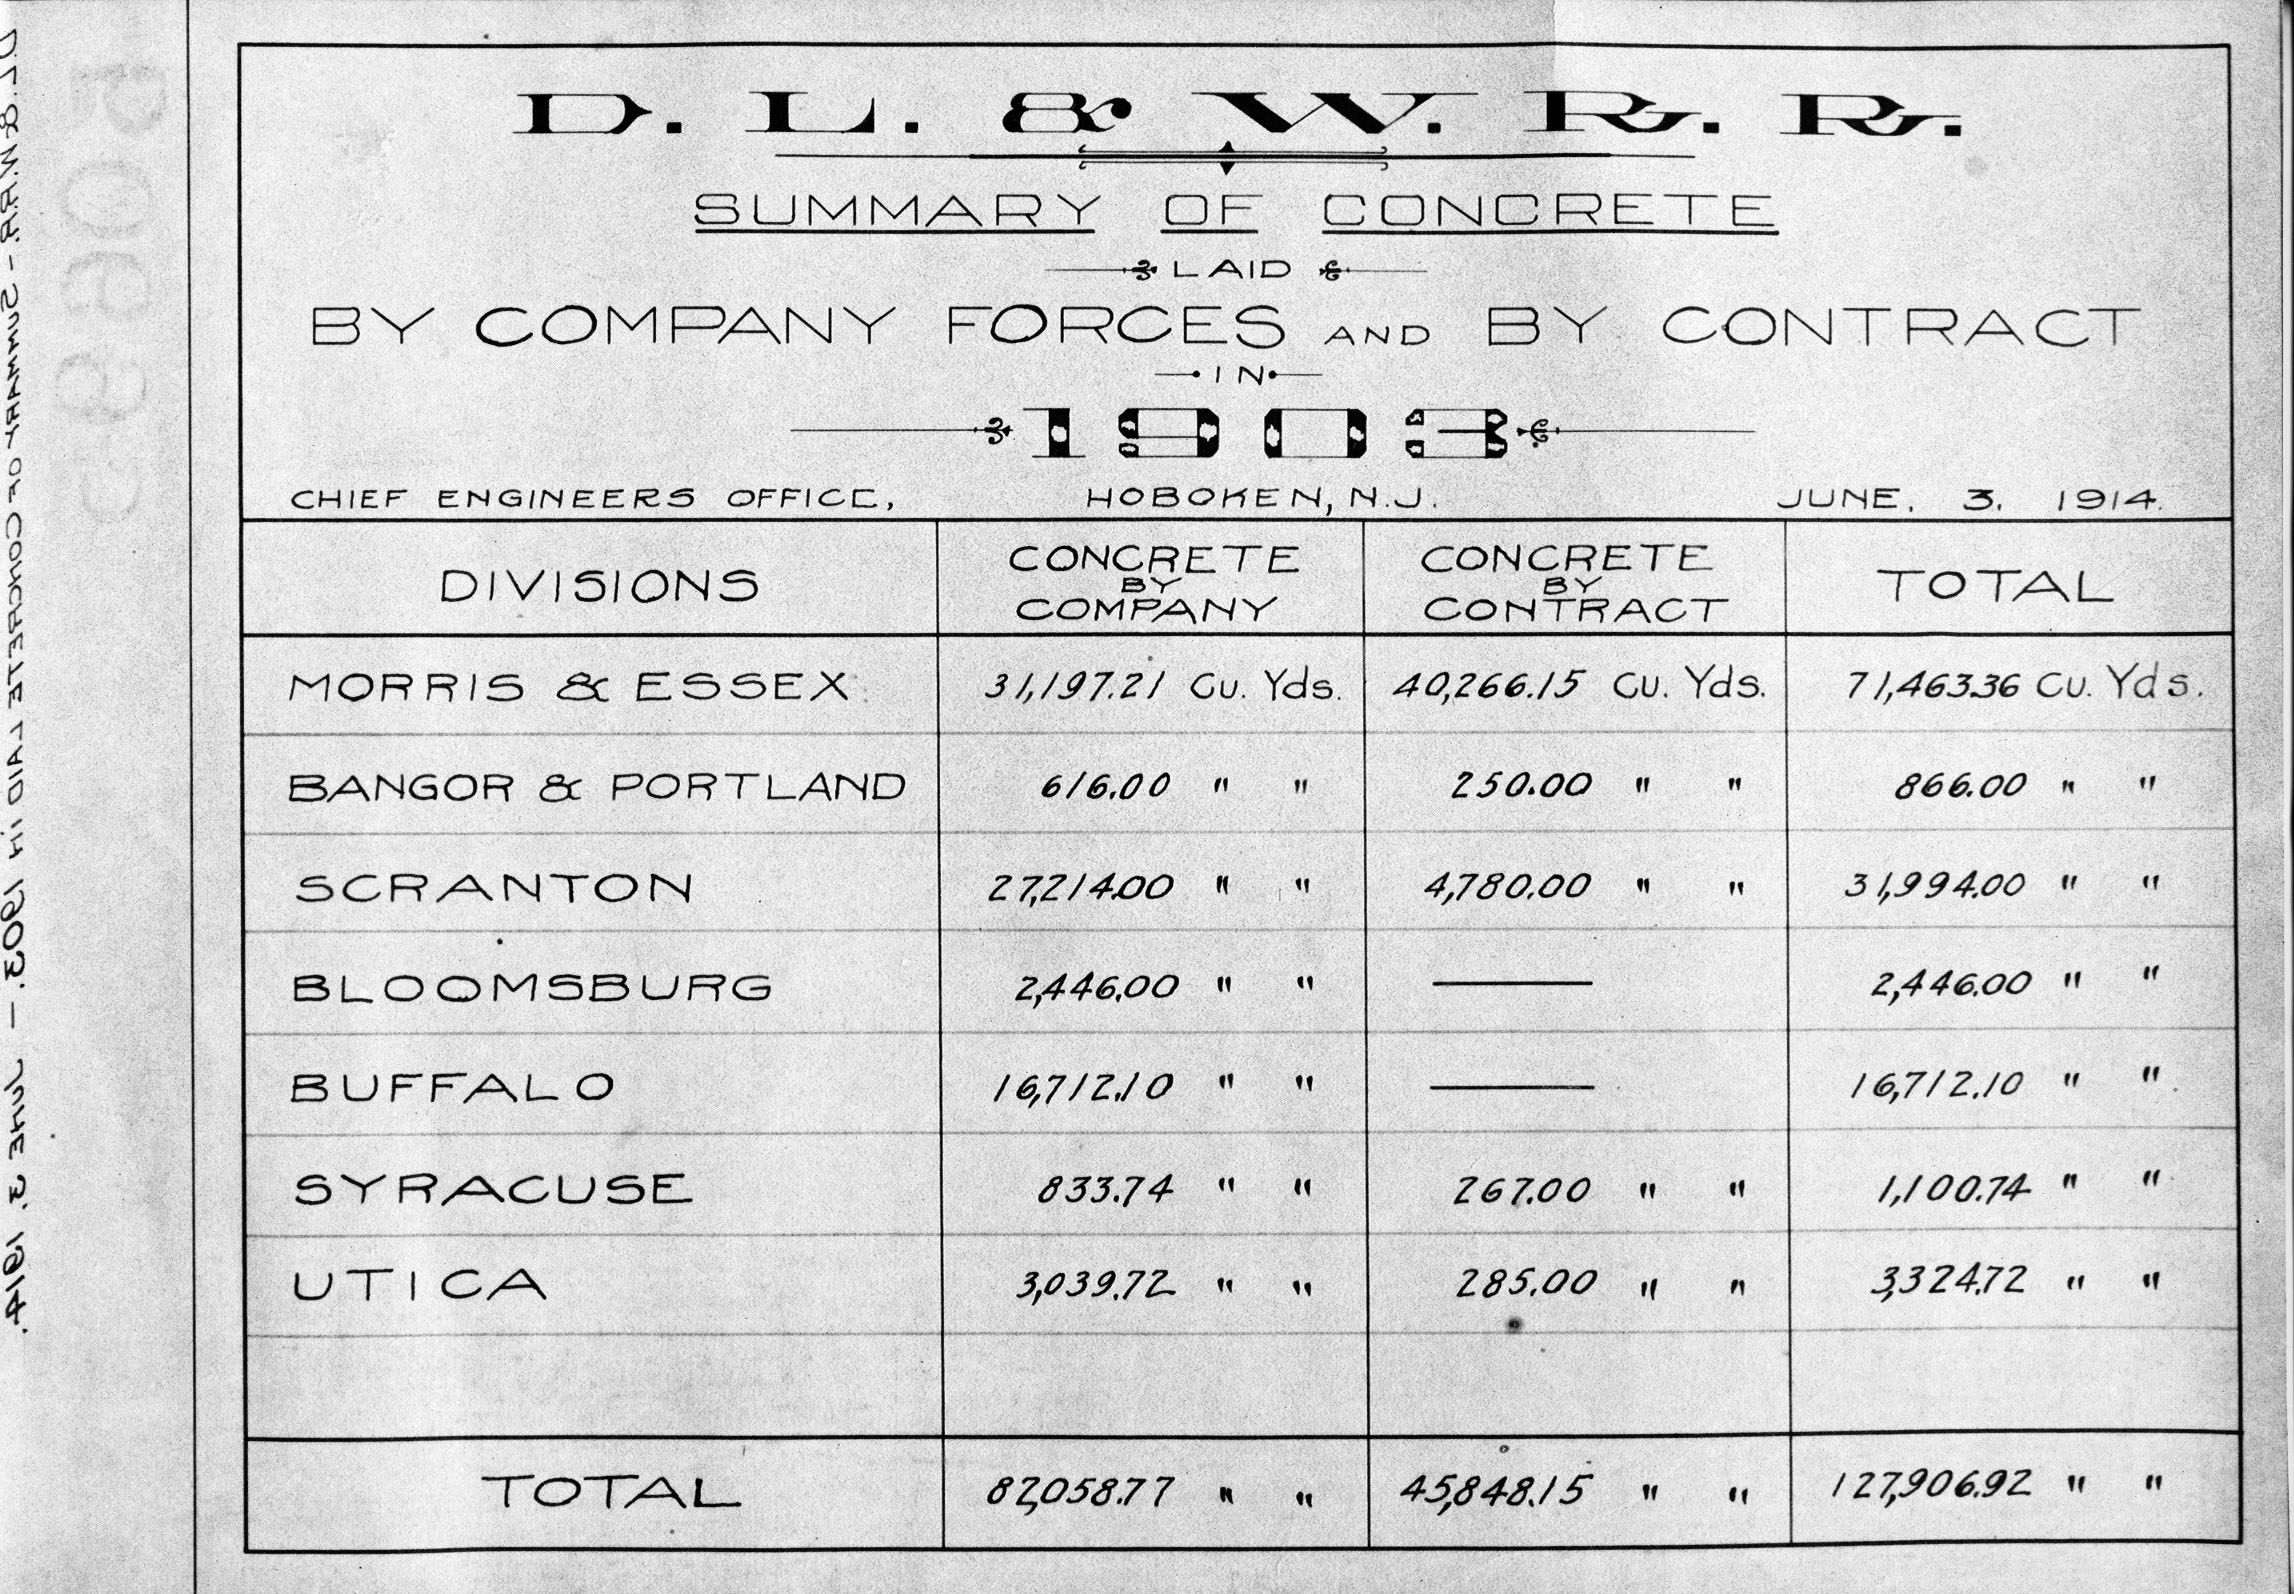 D. L. & W. R. R.
SUMMARY OF CONCRETE
LAID
BY COMPANY FORCES AND BY CONTRACT
IN
1903
CHIEF ENGINEERS OFFICE, HOBOKEN, N.J. JUNE. 3. 1914.
DIVISIONS CONCRETE BY COMPANY CONCRETE BY CONTRACT TOTAL
MORRIS & ESSEX 31,197.21 Cu. Yds. 40,266.15 Cu. Yds. 71,463.36 Cu. Yds.
BANGOR & PORTLAND 616.00 " " 250.00 " " 866.00 " "
SCRANTON 27,214.00 " " 4,780.00 " " 31,994.00 " "
BLOOMSBURG 2,446.00 " " — 2,446.00 " "
BUFFALO 16,712.10 " " — 16,712.10 " "
SYRACUSE 833.74 " " 267.00 " " 1,100.74 " "
UTICA 3,039.72 " " 285.00 " " 3,324.72 " "
TOTAL 82,058.77 " " 45,848.15 " " 127,906.92 " "
D.L.&W.R.R. - SUMMARY OF CONCRETE LAID IN 1903. — JUNE 3. 1914.